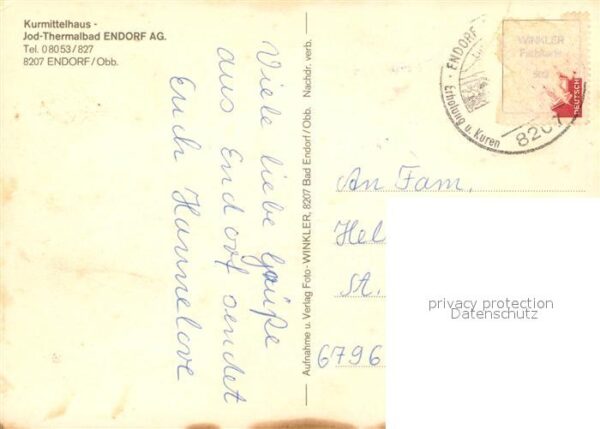 Kurmittelhaus -
Jod-Thermalbad ENDORF AG.
Tel. 08053/827
8207 ENDORF/Obb.
Viele liebe Grüße
aus Endorf sendet
Euch Hannelore
Aufnahme u. Verlag Foto-WINKLER, 8207 Bad Endorf/Obb. Nachdr. verb.
ENDORF
Erholung u. Kuren
8207
WINKLER
DEUTSCHE
An Fam.
Hel
St.
6796
privacy protection
Datenschutz